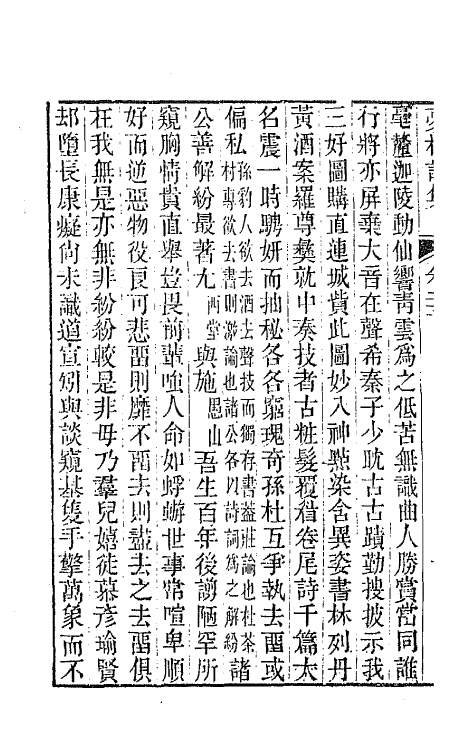 毫釐迦陵動仙響靑雲爲之低苦無識曲人勝賞當同誰
行將亦屏棄大音在聲希秦子少耽古古蹟勤搜披示我
三好圖購直連城貲此圖妙入神點染含異姿書林列丹
黃酒案羅尊彝就中奏技者古粧髮覆眉卷尾詩千篇太
名震一時騁妍而抽秘各各窮瑰奇孫杜互爭執去畱或
偏私孫豹人欲去酒去聲技而獨存書蓋莊論也杜茶村專欲去書則激論也諸公各以詩詞爲之解紛諸
公善解紛最著尤西堂與施愚山吾生百年後謭陋罕所
窺胸情貴直舉豈畏前輩嗤人命如蜉蝣世事常喧卑順
好而逆惡物役良可悲畱則靡不畱去則盡去之去畱俱
在我無是亦無非紛紛較是非毋乃羣兒嬉徒慕彥瑜賢
却墮長康癡尙未識道宣矧與談窺基隻手擎萬象而不